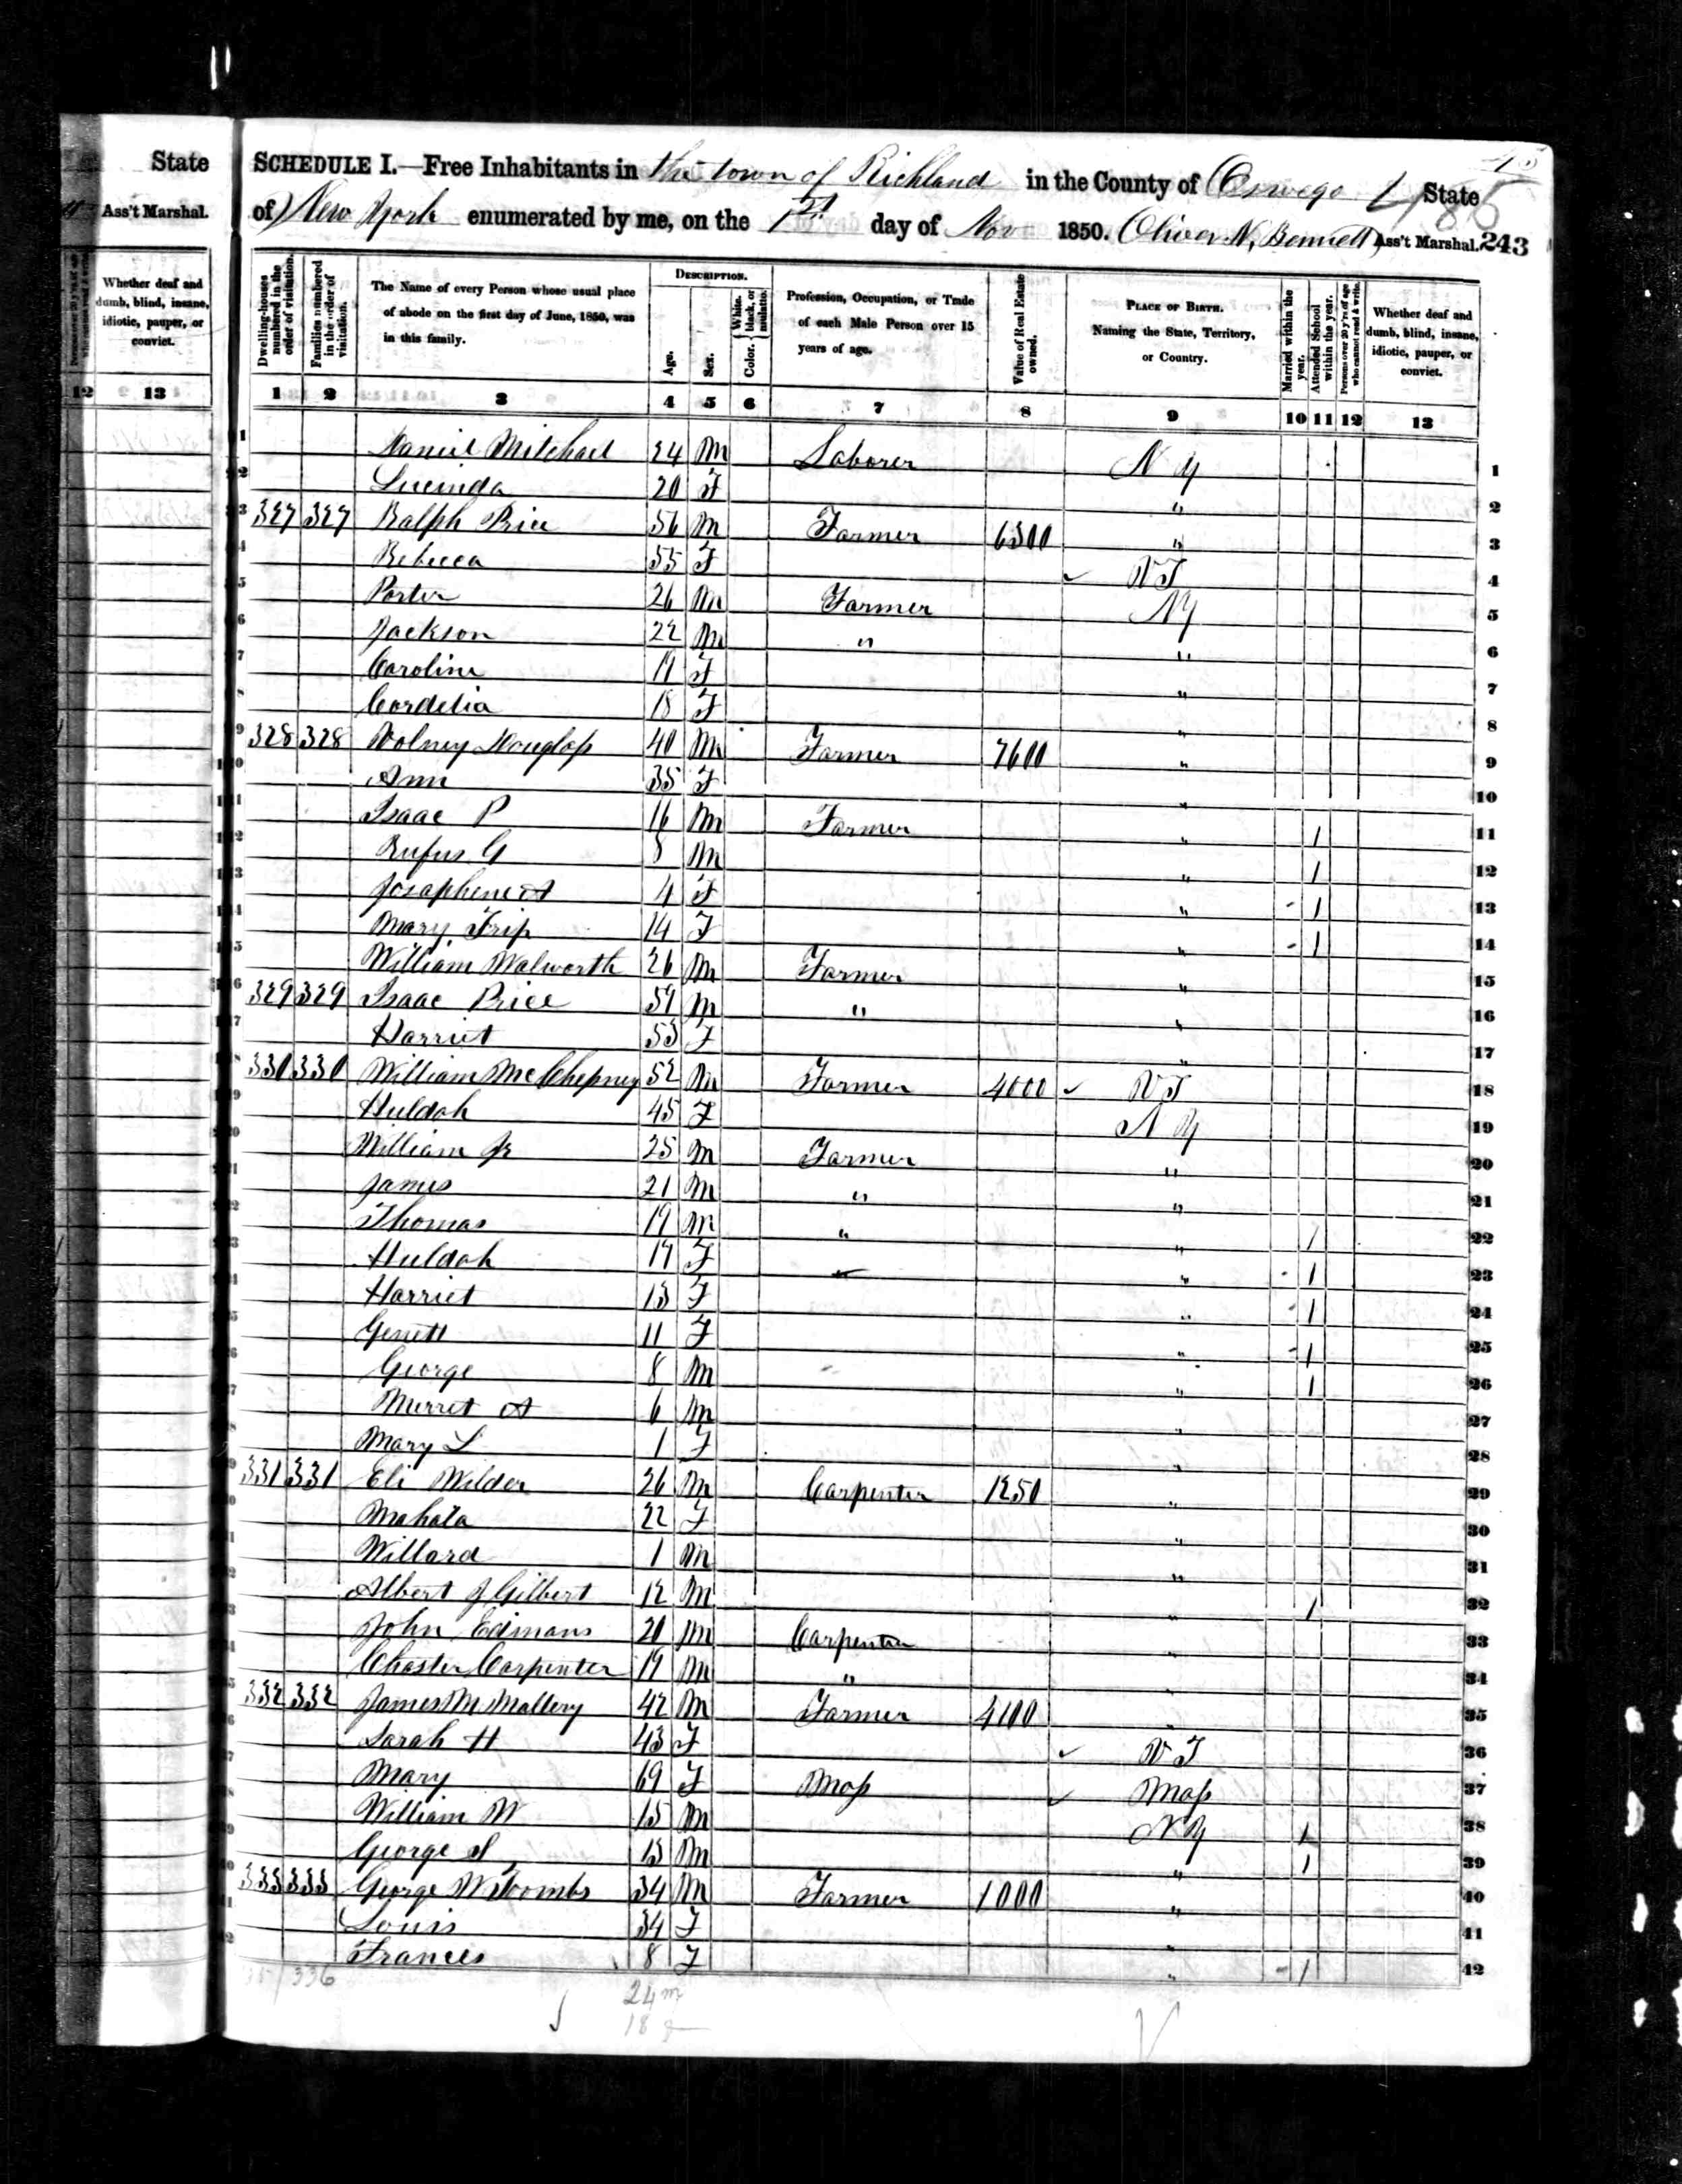 State
Ass't Marshal.
Whether deaf and dumb, blind, insane, idiotic, pauper, or convict.
12 13
SCHEDULE I.—Free Inhabitants in the town of Richland in the County of Oswego State
of New York enumerated by me, on the 1st day of Nov 1850. Oliver N. Bennett Ass't Marshal. 243
Dwelling-houses numbered in the order of visitation.
Families numbered in the order of visitation.
The Name of every Person whose usual place of abode on the first day of June, 1850, was in this family.
DESCRIPTION.
Age.
Sex.
Color. White, black, or mulatto.
Profession, Occupation, or Trade of each Male Person over 15 years of age.
Value of Real Estate owned.
PLACE OF BIRTH. Naming the State, Territory, or Country.
Married within the year.
Attended School within the year.
Persons over 20 y'rs of age who cannot read & write.
Whether deaf and dumb, blind, insane, idiotic, pauper, or convict.
1 2 3 4 5 6 7 8 9 10 11 12 13
1 Daniel Mitchael 24 M Laborer N Y 1
2 Lucinda 20 F " 2
3 327 327 Ralph Price 56 M Farmer 6300 " 3
4 Rebecca 55 F VT 4
5 Porter 26 M Farmer NY 5
6 Jackson 22 M " " 6
7 Caroline 19 F " 7
8 Cordelia 18 F " 8
9 328 328 Volney Douglass 40 M Farmer 7600 " 9
10 Ann 35 F " 10
11 Isaac P 16 M Farmer " 1 11
12 Rufus G 8 M " 1 12
13 Josaphine A 4 F " 1 13
14 Mary Trip 14 F " 1 14
15 William Walworth 26 M Farmer " 15
16 329 329 Isaac Price 59 M " " 16
17 Harriet 53 F " 17
18 330 330 William McChesney 52 M Farmer 4000 VT 18
19 Huldah 45 F N Y 19
20 William Jr 25 M Farmer " 20
21 James 21 M " " 21
22 Thomas 19 M " " 1 22
23 Huldah 17 F " 1 23
24 Harriet 13 F " 1 24
25 Genett 11 F " 1 25
26 George 8 M " 1 26
27 Murret A 6 M " 27
28 Mary L 1 F " 28
29 331 331 Eli Wilder 26 M Carpenter 1250 " 29
30 Mahala 22 F " 30
31 Willard 1 M " 31
32 Albert J Gilbert 12 M " 1 32
33 John Edmans 20 M Carpenter " 33
34 Chaster Carpenter 19 M " " 34
35 332 332 James M Mallery 42 M Farmer 4100 " 35
36 Sarah H 43 F VT 36
37 Mary 69 F Mass Mass 37
38 William W 15 M NY 1 38
39 George S 13 M " 1 39
40 333 333 George Witcombs 34 M Farmer 1000 " 40
41 Louis 34 F " 41
42 Frances 8 F " 1 42
336
24 m
18 f